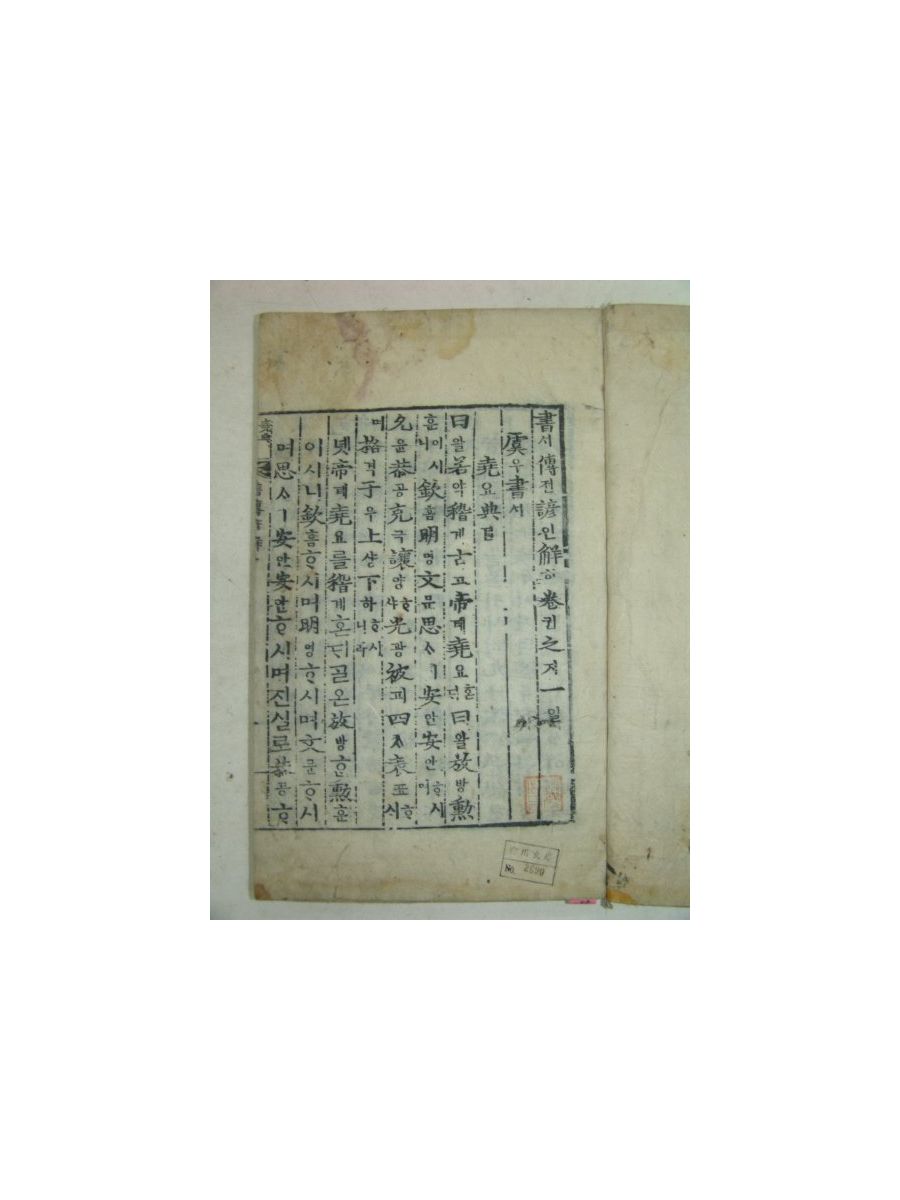 書셔傳젼諺언解ᄒᆡ卷권之지一일
虞우書셔
堯요典뎐
曰왈若약稽계古고帝뎨堯요혼ᄃᆡ曰왈放방勳
훈이시니欽흠明명文문思ᄉᆞㅣ安안安안ᄒᆞ시며
允윤恭공克극讓양ᄒᆞ샤光광被피四ᄉᆞ表표ᄒᆞ시
며格격于우上샹下하ᄒᆞ시니라
녯帝뎨堯요를稽계혼ᄃᆡ ᄀᆞᆯ온放방ᄒᆞᆫ勳훈
이시니欽흠ᄒᆞ시며明명ᄒᆞ시며文문ᄒᆞ시
며思ᄉᆞㅣ安안安안ᄒᆞ시며진실로恭공ᄒᆞ
No. 2690